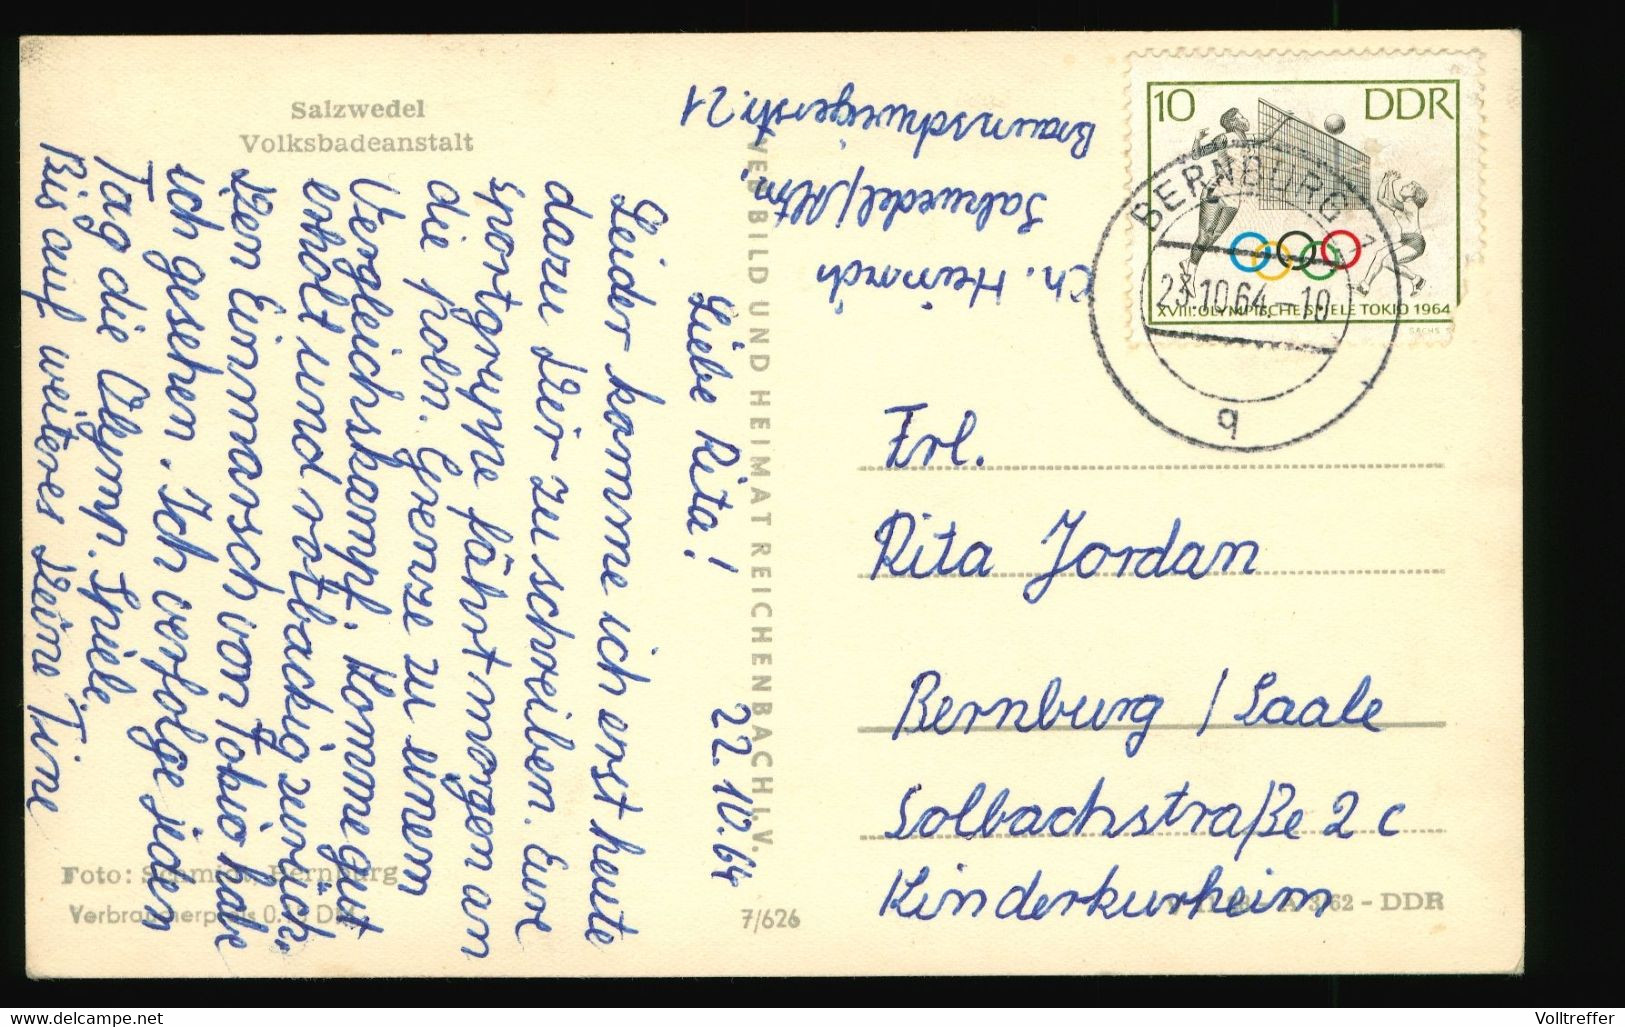 Salzwedel
Volksbadeanstalt
Ch. Heinrich
Salzwedel/Altm.
Braunschweigerstr. 21
22.10.64
Liebe Rita!
Leider komme ich erst heute
dazu Dir zu schreiben. Eure
Sportgruppe fährt morgen an
die poln. Grenze zu einem
Vergleichskampf. Komme gut
erholt und rotbackig zurück.
Den Einmarsch von Tokio habe
ich gesehen. Ich verfolge jeden
Tag die Olymp. Spiele.
Bis auf weiteres Deine Tine
Foto: Schmidt, Bernburg
Verbraucherpreis 0.15 DM
VEB BILD UND HEIMAT REICHENBACH I.V.
7/626
10 DDR
XVIII. OLYMPISCHE SPIELE TOKIO 1964
SACHS
BERNBURG 1
23.10.64-10
q
Frl.
Rita Jordan
Bernburg / Saale
Solbachstraße 2 c
Kinderkurheim
A 3/62 - DDR
www.delcampe.net
Volltreffer